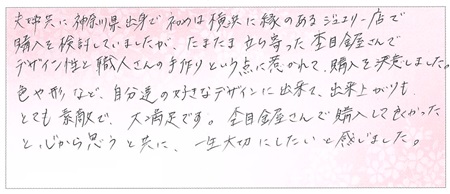 夫婦共に神奈川県出身で初めは横浜に縁のあるジュエリー店で
購入を検討していましたが、たまたま立ち寄った杢目金屋さんで
デザイン性と職人さんの手作りという点に惹かれて、購入を決意しました。
色や形など、自分達の好きなデザインに出来て、出来上がりも
とても素敵で、大満足です。杢目金屋さんで購入して良かった
と心から思うと共に、一生大切にしたいと感じました。